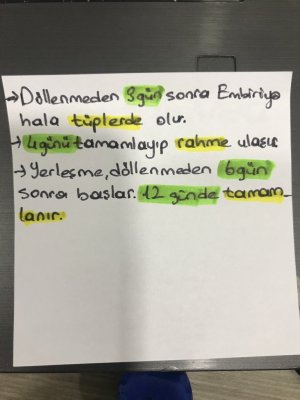 →Döllenmeden 3gün sonra Embiriyo
hala tüplerde olur.
→4günü tamamlayıp rahme ulaşır
→Yerleşme, döllenmeden 6gün
sonra başlar. 12 günde tamam
lanır.